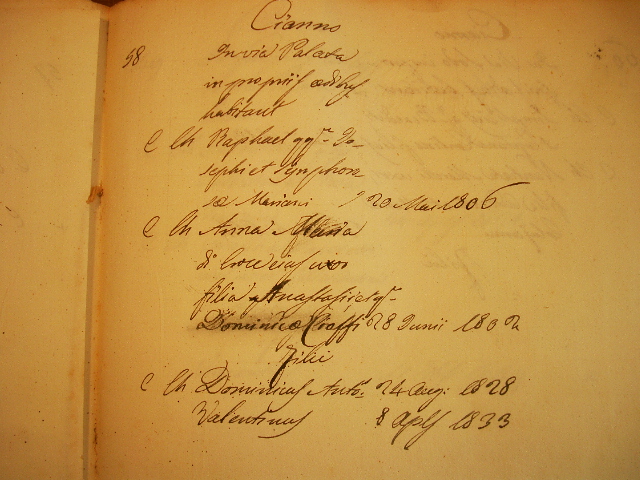 Cianno
58 In via Palata
in propriis ædibus
habitant
C Ch Raphael qq.m Jo-
sephi et Symphoro
sæ Mariani 20 Maii 1806
C Ch Anna Maria
di Croce eius uxor
filia Anastasii et q.
Dominicæ Cioffi 28 Junii 1802
Filii
C Ch Dominicus Anto. 24 Aug: 1828
Valentinus 8 Aplis 1833